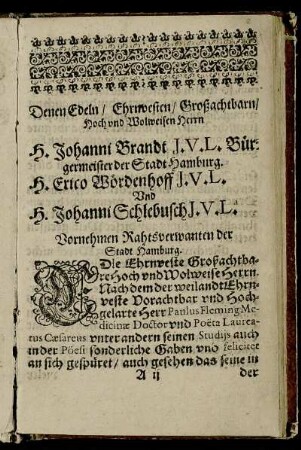 Denen Edeln / Ehrvesten / Großachtbarn /
Hoch vnd Wolweisen Herrn
H. Johanni Brandt J.V.L. Bür-
germeister der Stadt Hamburg.
H. Erico Wördenhoff J.V.L.
Vnd
H. Johanni Schlebusch J.V.L.
Vornehmen Rahtsverwanten der
Stadt Hamburg.
Die Ehrnveste Großachtba-
re Hoch vnd Wolweise Herrn.
Nach dem der weilandt Ehrn-
veste Vorachtbar vnd Hoch-
gelarte Herr Paulus Fleming Me-
dicinæ Doctor vnd Poëta Laurea-
tus Cæsareus vnter andern seinen Studijs auch
in der Pöesi sonderliche Gaben vnd felicitet
an sich gespüret / auch gesehen das seine in
A ij der